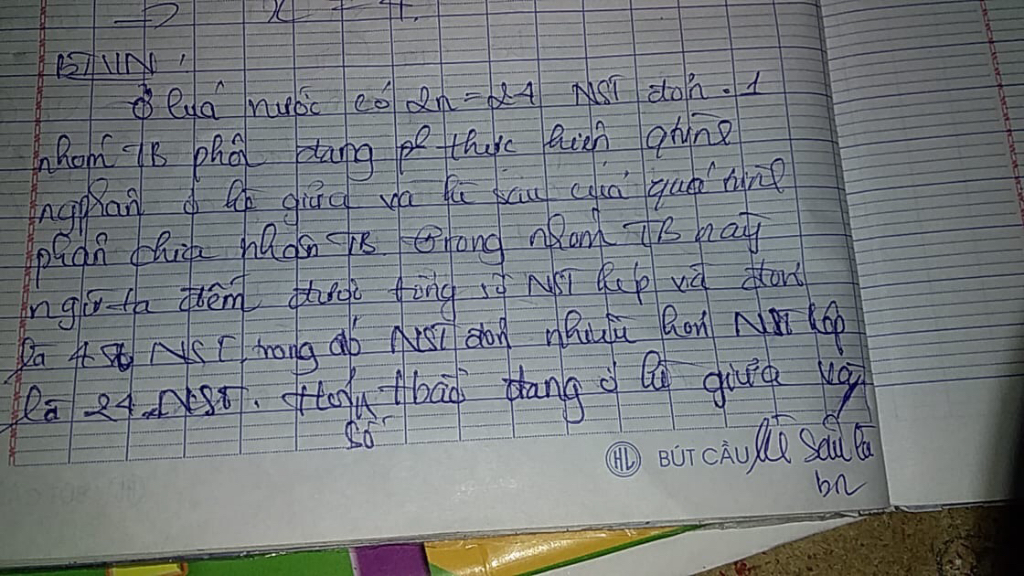 BTVN:
Ở lúa nước có 2n=24 NST đơn. 1
nhóm TB phôi đang thực hiện
ngphân ở kì giữa và kì sau quá
phân chia nhân TB. Trong nhóm TB này
ngừ ta đếm được tổng số NST kép và đơn
là NST, trong đó NST đơn nhiều hơn NST kép
là 24 NST. Hỏi số tbào đang ở kì giữa và
kì sau là
bn
HL BÚT CẦU